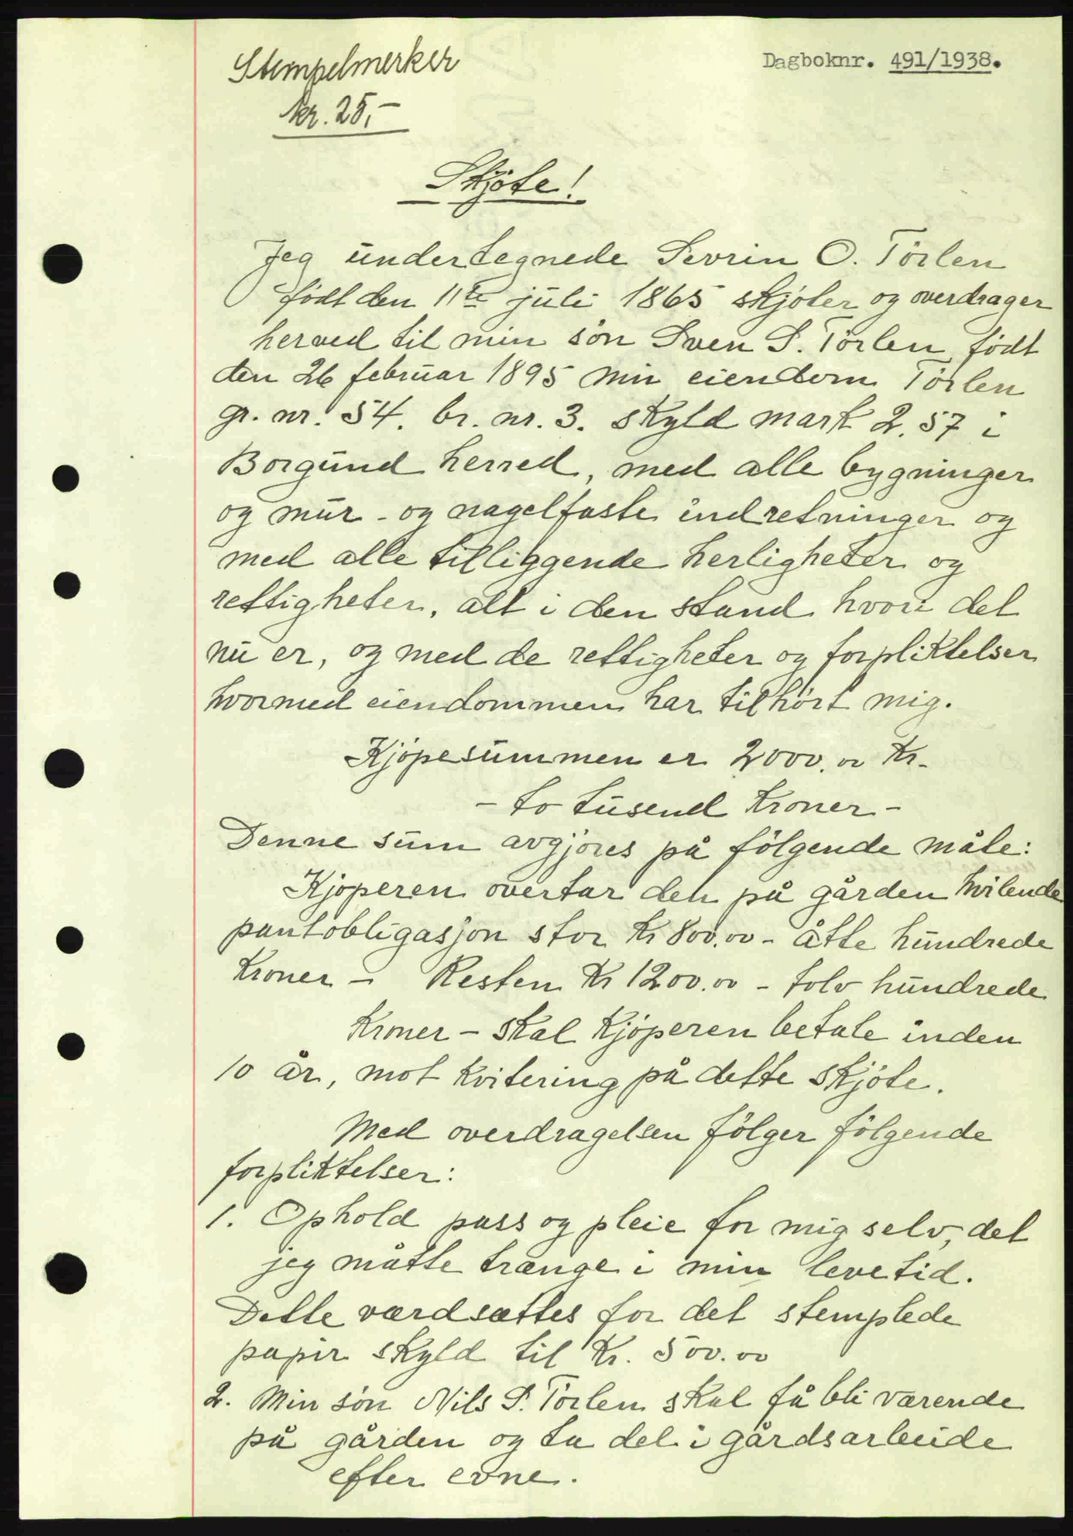 Stempelmerker
kr. 25,-
Dagboknr. 491/1938.
Skjöte!
Jeg undertegnede Sevrin O. Törlen
födt den 11te juli 1865 skjöter og overdrager
herved til min sön Sven S. Törlen födt
den 26 februar 1895 min eiendom Törlen
gr. nr. 54. br. nr. 3. skyld mark 2.57 i
Borgund herred, med alle bygninger
og mur- og nagelfaste indretninger og
med alle tilliggende herligheter og
rettigheter, alt i den stand hvori det
nu er, og med de rettigheter og forpliktelser
hvormed eiendommen har tilhört mig.
Kjöpesummen er 2000.00 Kr.
- to tusend Kroner -
Denne sum avgjöres på fölgende måte:
Kjöperen overtar den på gården hvilende
pantobligasjon stor Kr 800.00 - åtte hundrede
Kroner - Resten Kr 1200.00 - tolv hundrede
Kroner - skal Kjöperen betale inden
10 år, mot kvitering på dette skjöte.
Med overdragelsen fölger fölgende
forpliktelser:
1. Ophold pass og pleie for mig selv, det
jeg måtte trænge i min levetid.
Dette værdsættes for det stemplede
papir skyld til Kr. 500.00
2. Min sön Nils S. Törlen skal få bli værende
på gården og ta del i gårdsarbeide
efter evne.